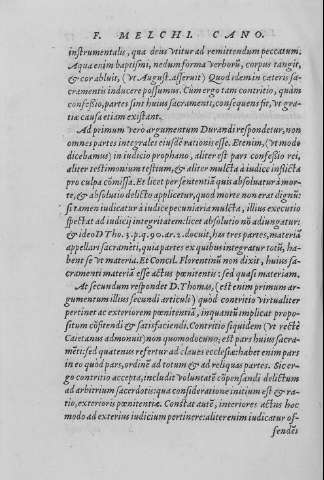 F. MELCHI. CANO.
instrumentalis, qua deus vtitur ad remittendum peccatum.
Aqua enim baptismi, nedum forma verborū, corpus tangit,
& cor abluit, (vt August. asseruit) Quod idem in cæteris sa-
cramentis inducere possumus. Cùm ergo tam contritio, quàm
confessio, partes sint huius sacramenti, consequens fit, vt gra-
tiæ causa etiam existant.
Ad primum verò argumentum Durandi respondetur, non
omnes partes integrales eiusdē rationis esse. Etenim, (vt modo
dicebamus) in iudicio prophano, aliter est pars confessio rei,
aliter testimonium testium, & aliter mulcta à iudice inflicta
pro culpa cōmissa. Et licet per sententiā quis absoluatur à mor-
te, & absolutio delicto applicetur, quod more non erat dignū:
si tamen iudicatur à iudice pecuniaria mulcta, illius executio
spectat ad iudicij integritatem: licet absolutio nō adiungatur:
& ideo D Tho. 3. p. q. 90. ar. 2. docuit, has tres partes, materiā
appellari sacramēti, quia partes ex quibus integratur totū, ha-
bent se vt materia. Et Concil. Florentinū non dixit, huius sa-
cramenti materiā esse actus pœnitentis: sed quasi materiam.
At secundum respondet D. Thomas, (est enim primum ar-
gumentum illius secundi articuli) quòd contritio virtualiter
pertinet ac exteriorem pœnitentiā, inquantū implicat propo-
situm cōfitendi & satisfaciendi. Contritio siquidem (vt rectè
Caietanus admonuit) non quomodocunq; est pars huius sacra-
mēti: sed quatenus refertur ad claues ecclesiæ: habet enim pars
in eo quòd pars, ordinē ad totum & ad reliquas partes. Sic er-
go contritio accepta, includit voluntatē cōpensandi delictum
ad arbitrium sacerdotis: qua consideratione initium est & ra-
tio, exterioris pœnitentiæ. Constat autē, interiores actus hoc
modo ad exterius iudicium pertinere: aliter enim iudicatur of-
fendēs